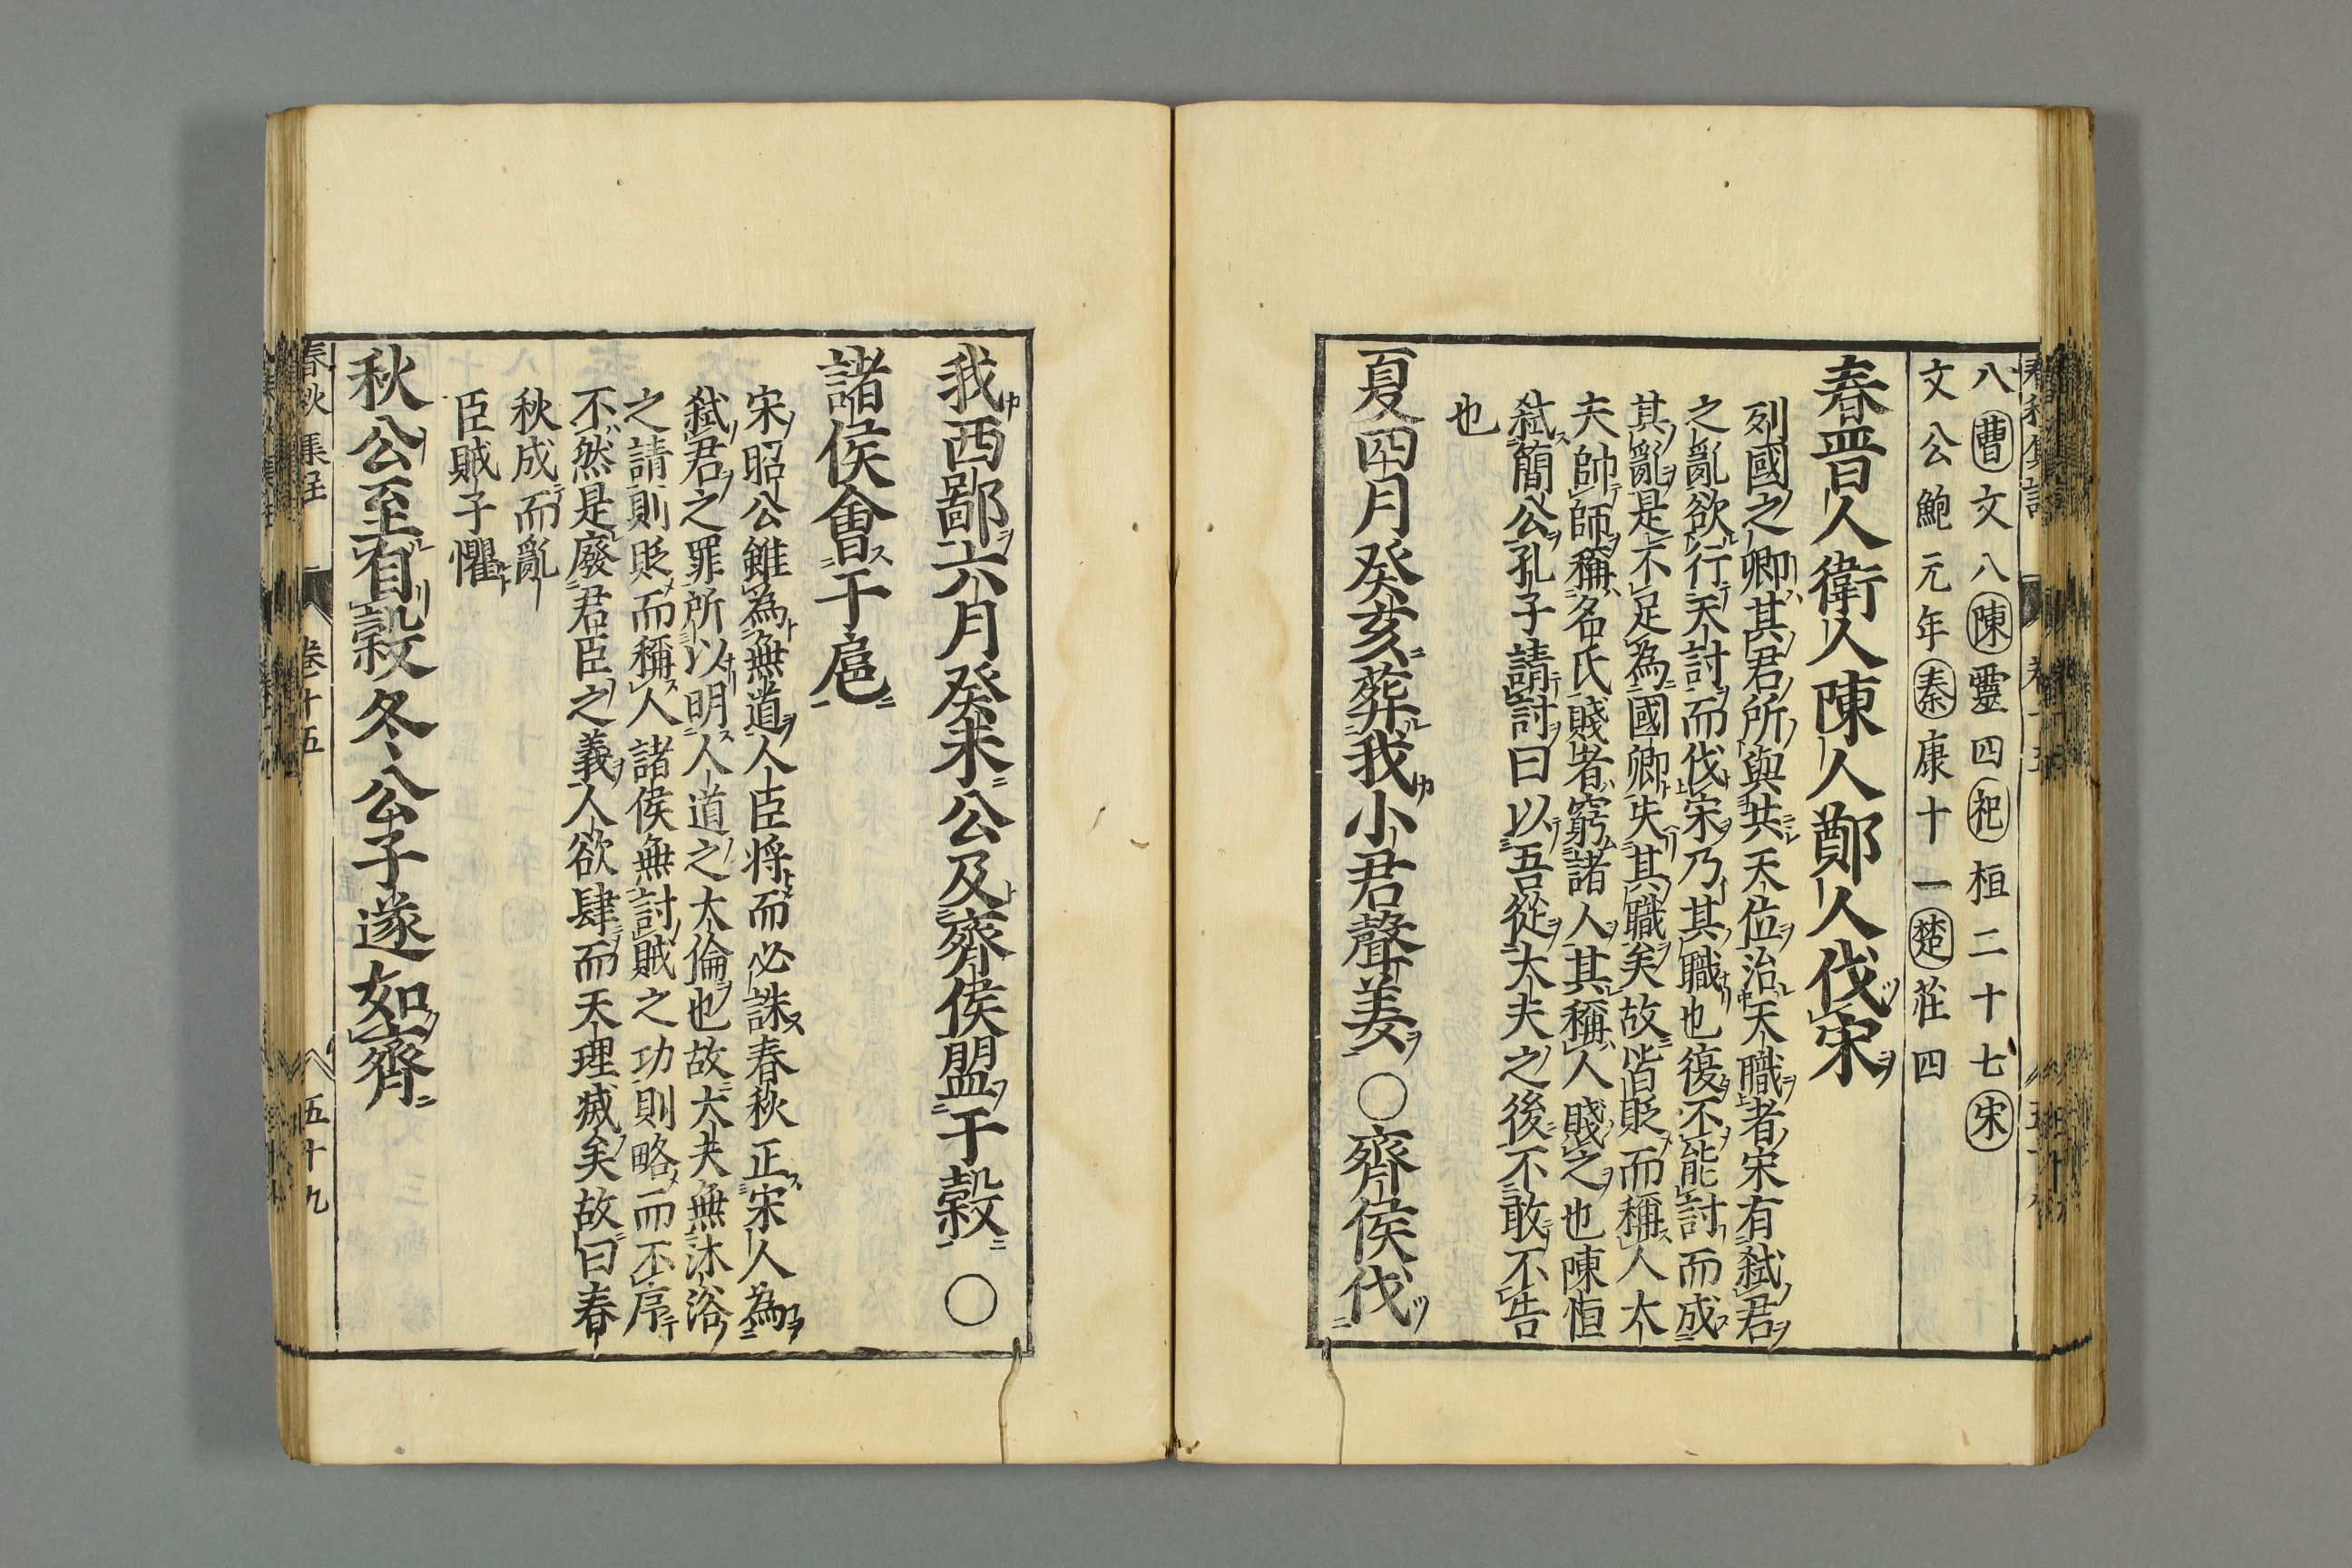 八曹文八陳靈四杞桓二十七宋
文公鮑元年秦康十一楚莊四
春晋人衛人陳人鄭人伐宋
列國之卿其君所與共天位治天職者宋有弑君
之亂欲行天討而伐宋乃其職也復不能討而成
其亂是不足為國卿失其職矣故皆貶而稱人大
夫帥師稱名氏賤者窮諸人其稱人賤之也陳恒
弑簡公孔子請討曰以吾從大夫之後不敢不告
也
夏四月癸亥葬我小君聲姜○齊侯伐
我西鄙六月癸未公及齊侯盟于穀○
諸侯會于扈
宋昭公雖為無道人臣将而必誅春秋正宋人為
弑君之罪所以明人道之大倫也故大夫無沐浴
之請則貶而稱人諸侯無討賊之功則略而不序
不然是廢君臣之義人欲肆而天理滅矣故曰春
秋成而亂
臣賊子懼
秋公至自穀冬公子遂如齊
春秋集註 卷十五 五十九